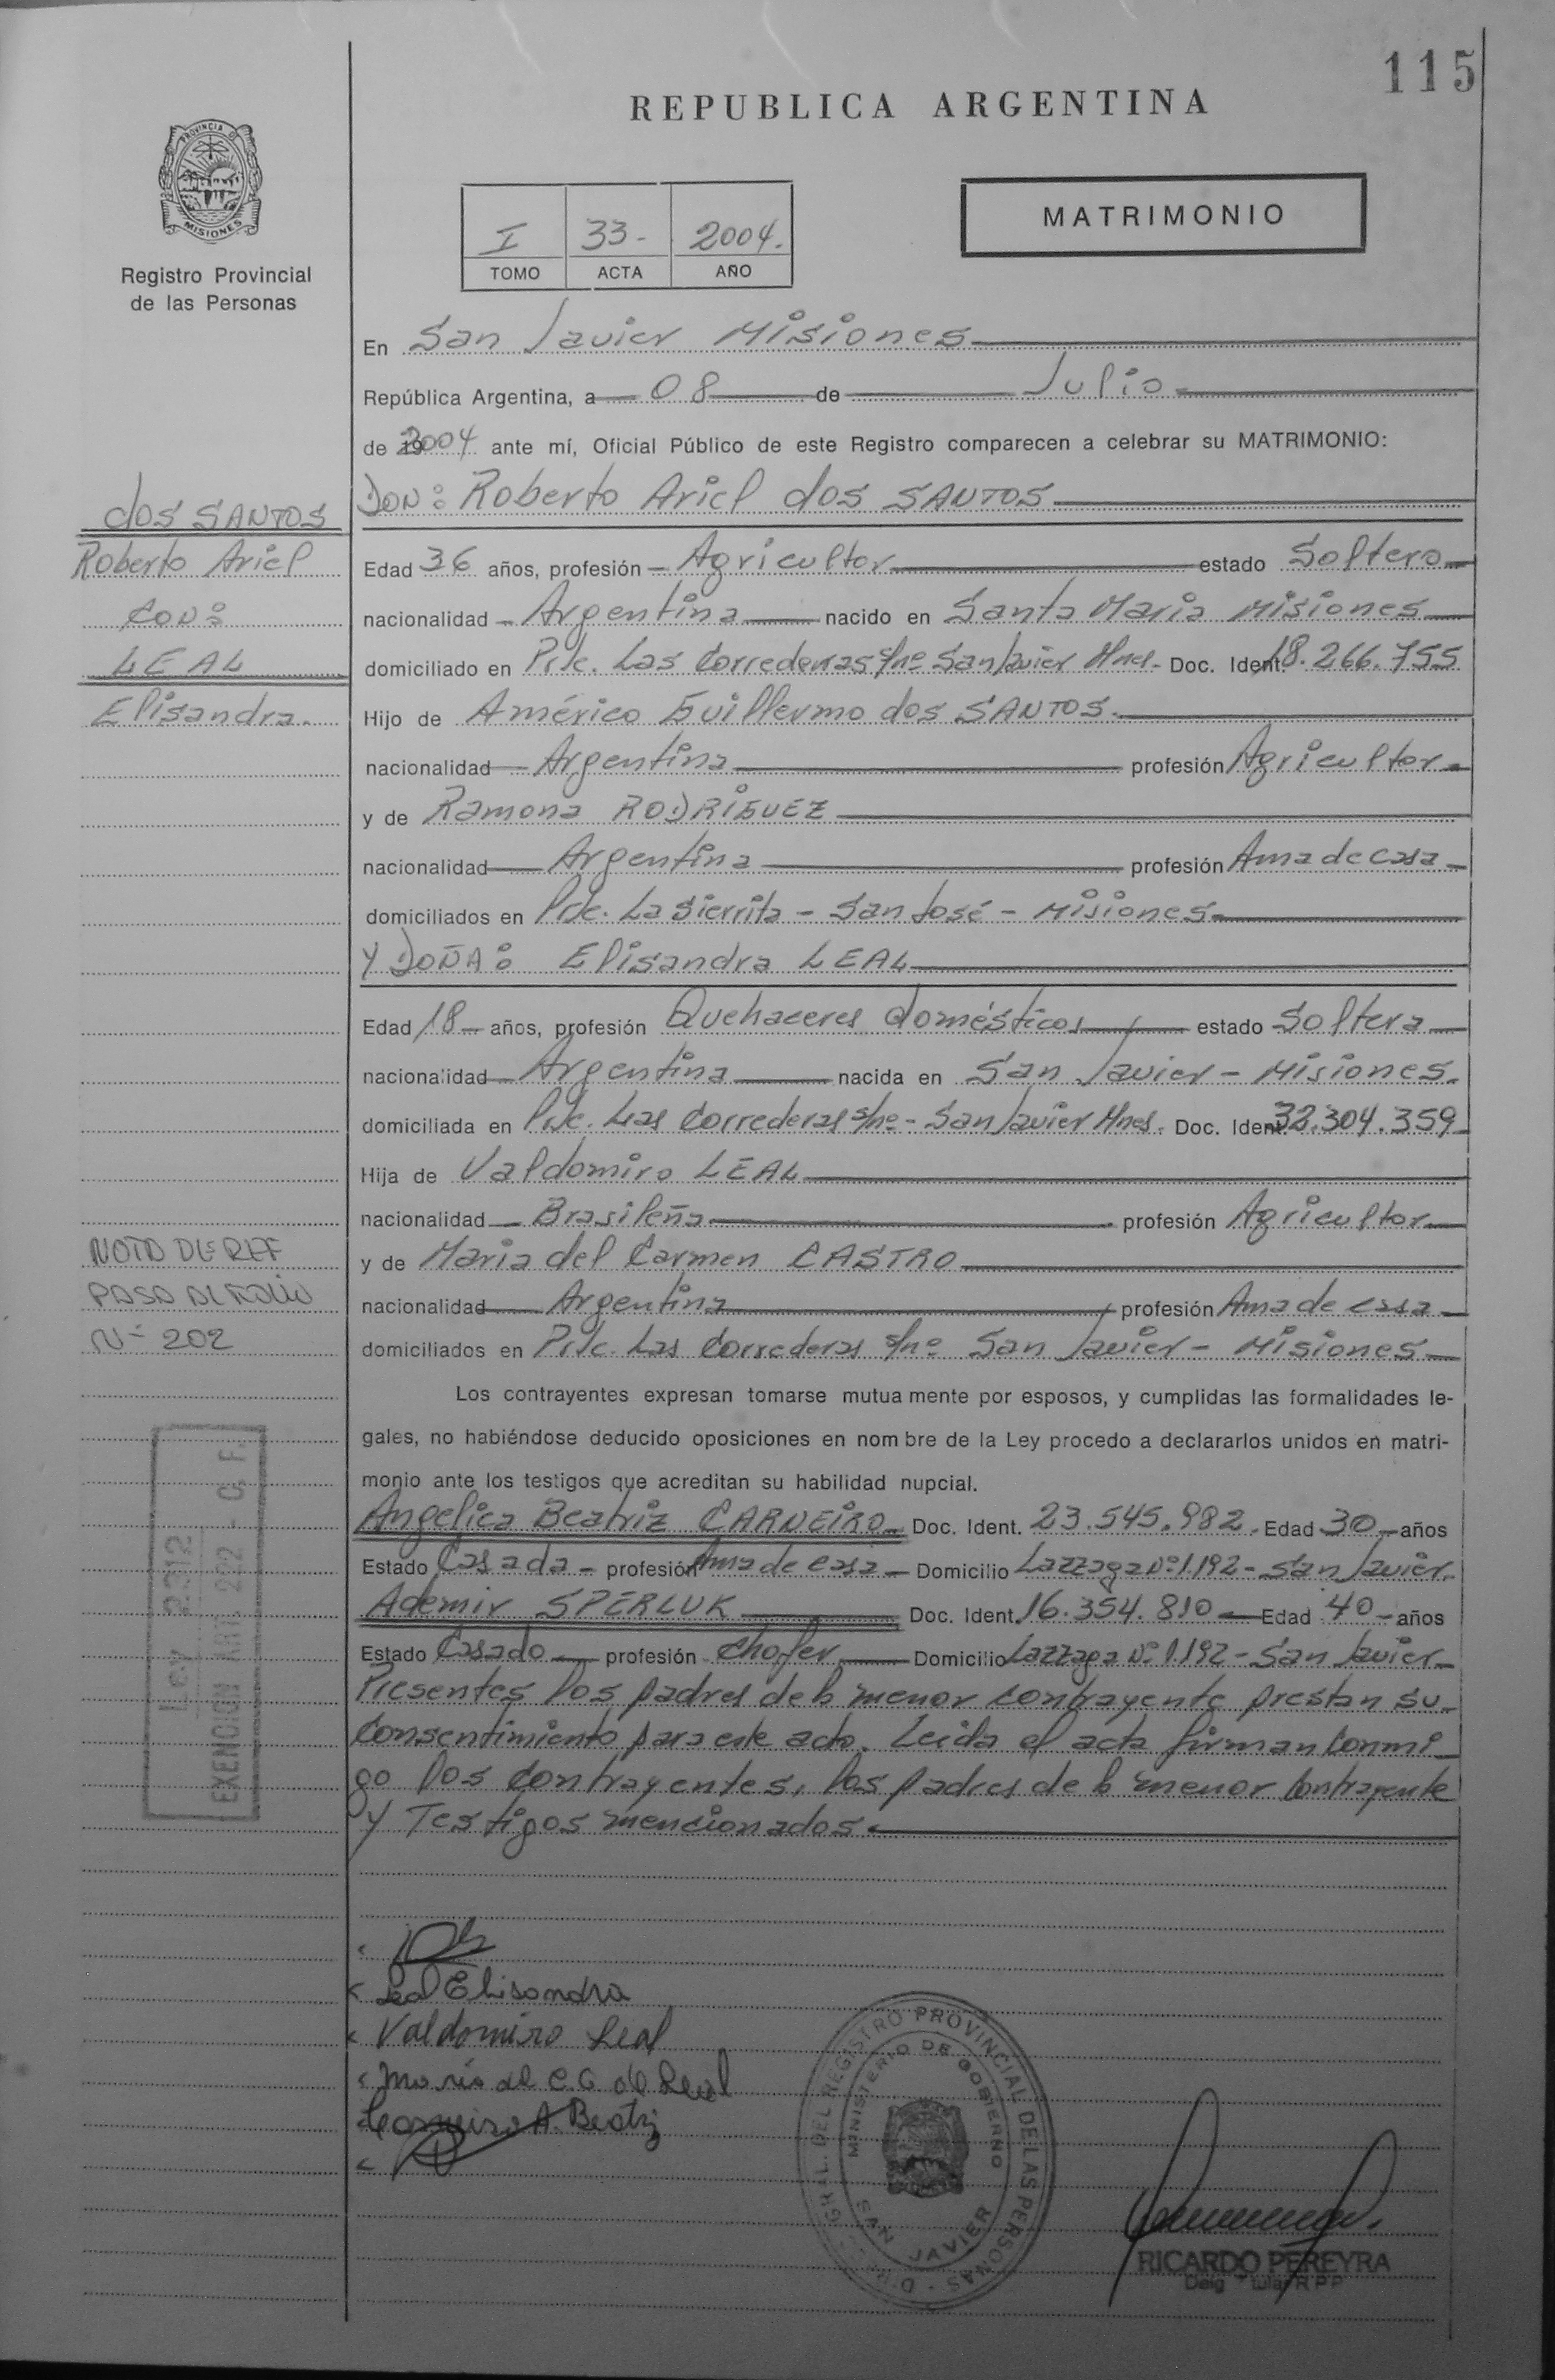 115
REPUBLICA ARGENTINA
PROVINCIA DE
MISIONES
Registro Provincial
de las Personas
I 33- 2004.
TOMO ACTA AÑO
MATRIMONIO
En San Javier Misiones
República Argentina, a 08 de Julio
de 2004 ante mí, Oficial Público de este Registro comparecen a celebrar su MATRIMONIO:
DON: Roberto Ariel dos SANTOS
dos SANTOS
Roberto Ariel
CON:
LEAL
Elisandra.
Edad 36 años, profesión Agricultor estado Soltero
nacionalidad Argentina nacido en Santa Maria Misiones
domiciliado en Pje. Las Correderas s/nº San Javier Mnes. Doc. Ident. 18.266.755
Hijo de Américo Guillermo dos SANTOS.
nacionalidad Argentina profesión Agricultor
y de Ramona RODRIGUEZ
nacionalidad Argentina profesión Ama de casa
domiciliados en Pje. La Sierrita - San José - Misiones
Y DOÑA: Elisandra LEAL
Edad 18 años, profesión Quehaceres domésticos estado Soltera
nacionalidad Argentina nacida en San Javier - Misiones.
domiciliada en Pje. Las Correderas s/nº - San Javier Mnes. Doc. Ident. 32.304.359
Hija de Valdomiro LEAL
nacionalidad Brasileña profesión Agricultor
y de Maria del Carmen CASTRO
nacionalidad Argentina profesión Ama de casa
domiciliados en Pje. Las Correderas s/nº San Javier - Misiones
NOTA DE REF
PASA AL FOLIO
Nº 202
Los contrayentes expresan tomarse mutua mente por esposos, y cumplidas las formalidades le-
gales, no habiéndose deducido oposiciones en nom bre de la Ley procedo a declararlos unidos en matri-
monio ante los testigos que acreditan su habilidad nupcial.
Angelica Beatriz CARNEIRO Doc. Ident. 23.545.982. Edad 30 años
Estado Casada - profesión Ama de casa Domicilio Lazzaga Nº 1.192 - San Javier.
Ademir SPERLUK Doc. Ident. 16.354.810 Edad 40 años
Estado Casado profesión Chofer Domicilio Lazzaga Nº 1.192 - San Javier
Presentes los padres de la menor contrayente prestan su
consentimiento para este acto. Leida el acta firman conmi
go los contrayentes, los padres de la menor contrayente
y Testigos mencionados.
Ley 2312
EXENCION ART. 292 - C. F.
Leal Elisandra
Valdomiro Leal
Maria del C. C de Leal
Carneiro A. Beatriz
DIREC. GRAL. DEL REGISTRO PROVINCIAL DE LAS PERSONAS
MINISTERIO DE GOBIERNO
SAN JAVIER
RICARDO PEREYRA